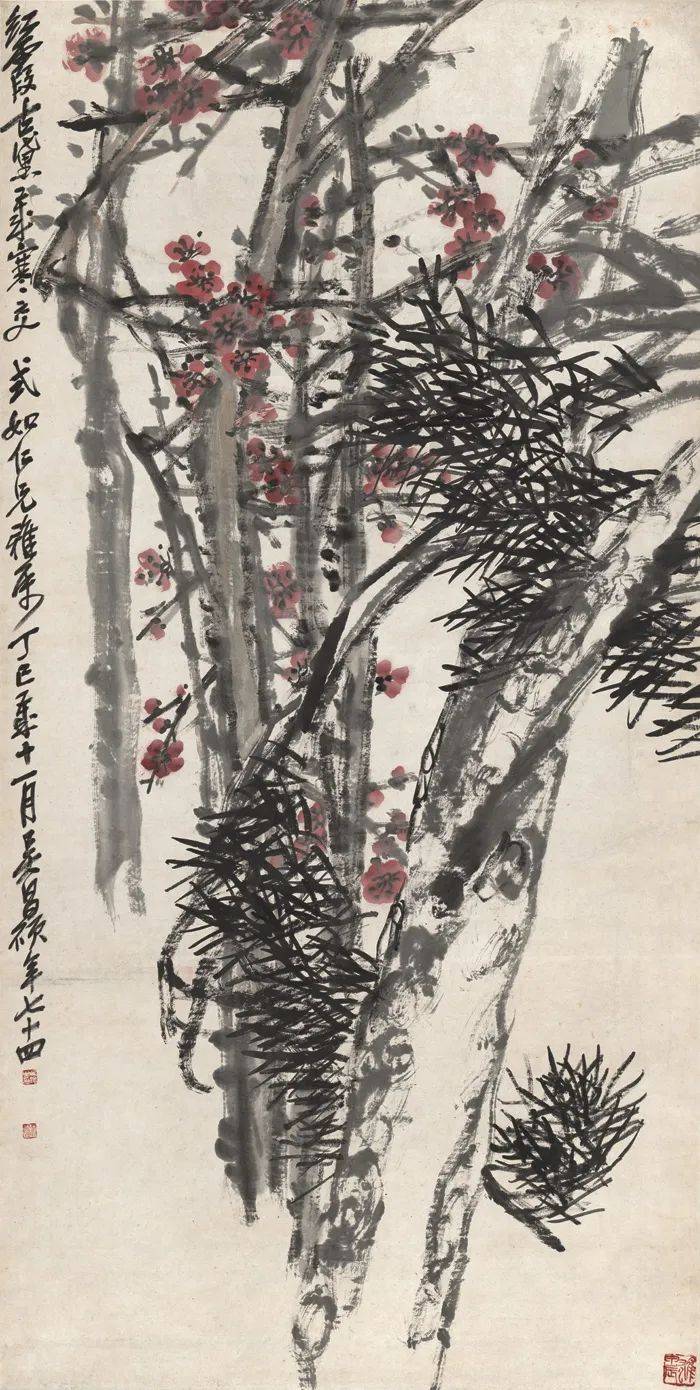 紅霞古黛歲寒交 式如仁兄雅屬 丁巳歲十一月吳昌碩年七十四